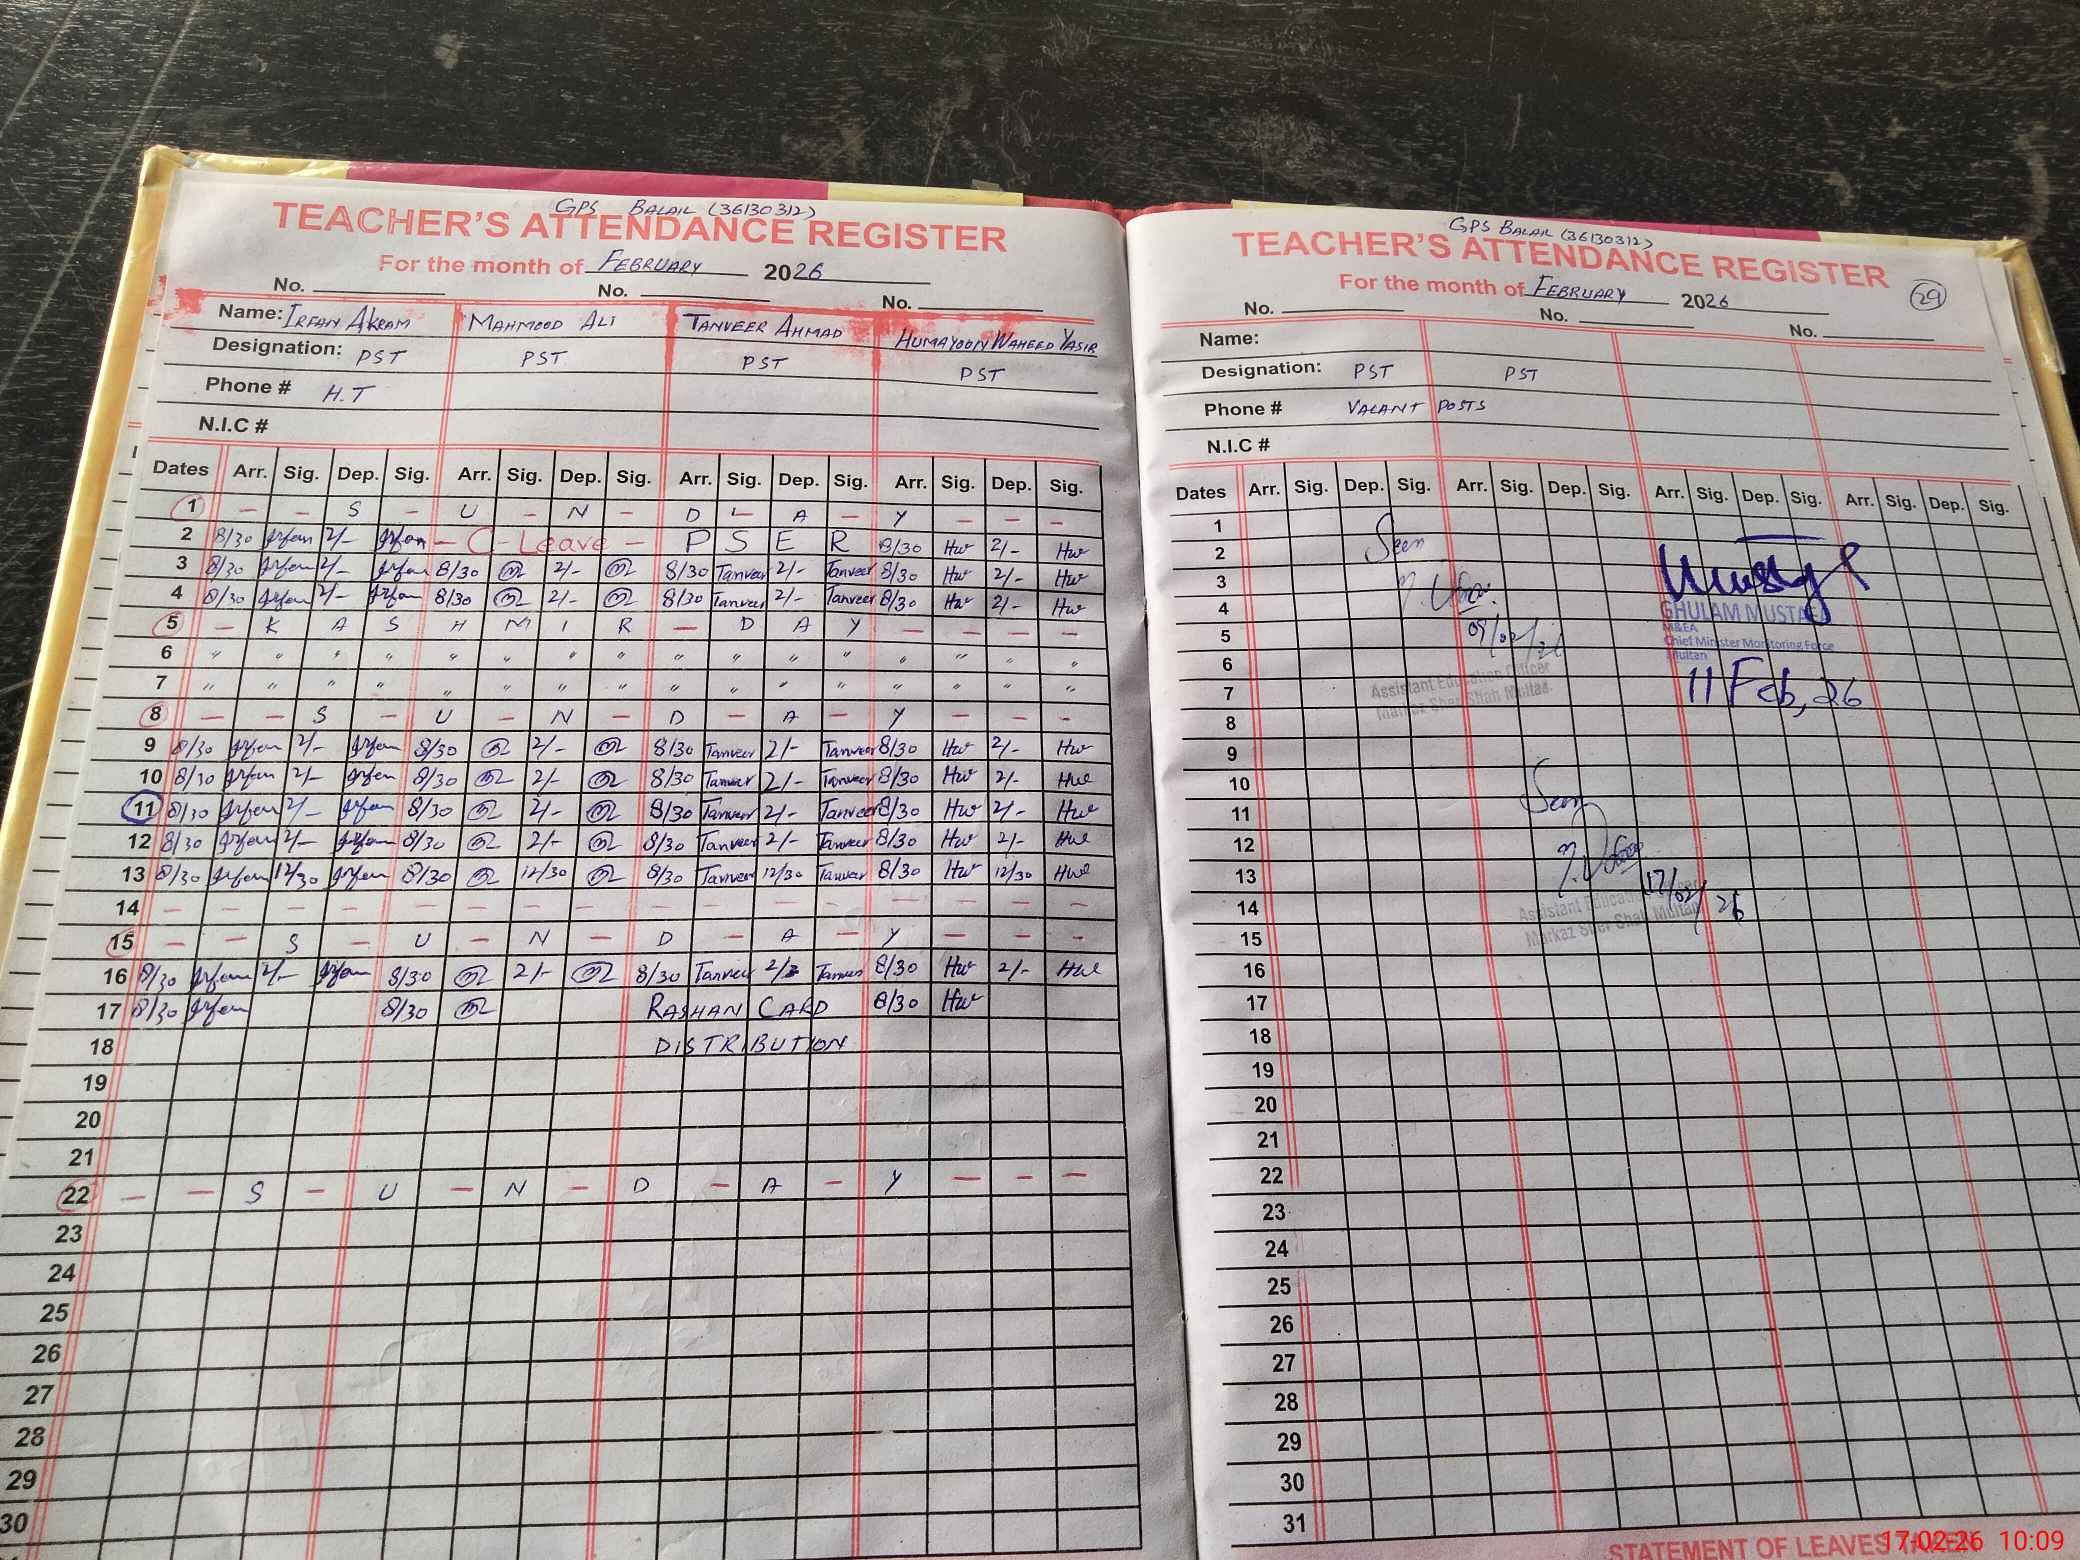 GPS BALAIL (36130312)
TEACHER'S ATTENDANCE REGISTER
For the month of FEBRUARY 2026
No. No. No.
Name: IRFAN AKRAM MAHMOOD ALI TANVEER AHMAD HUMAYOON WAHEED YASIR
Designation: PST PST PST PST
Phone # H.T
N.I.C #
Dates Arr. Sig. Dep. Sig. Arr. Sig. Dep. Sig. Arr. Sig. Dep. Sig. Arr. Sig. Dep. Sig.
1 - - S - U - N - D - A - Y - - -
2 8/30 Irfan 2/- Irfan - C - Leave - P S E R 8/30 Hw 2/- Hw
3 8/30 Irfan 2/- Irfan 8/30 2/- 8/30 Tanveer 2/- Tanveer 8/30 Hw 2/- Hw
4 8/30 Irfan 2/- Irfan 8/30 2/- 8/30 Tanveer 2/- Tanveer 8/30 Hw 2/- Hw
5 - K A S H M I R - D A Y - - - -
6 " " " " " " " " " " " " " " " "
7 " " " " " " " " " " " " " " " "
8 - - S - U - N - D - A - Y - - -
9 8/30 Irfan 2/- Irfan 8/30 2/- 8/30 Tanveer 2/- Tanveer 8/30 Hw 2/- Hw
10 8/30 Irfan 2/- Irfan 8/30 2/- 8/30 Tanveer 2/- Tanveer 8/30 Hw 2/- Hw
11 8/30 Irfan 2/- Irfan 8/30 2/- 8/30 Tanveer 2/- Tanveer 8/30 Hw 2/- Hw
12 8/30 Irfan 2/- Irfan 8/30 2/- 8/30 Tanveer 2/- Tanveer 8/30 Hw 2/- Hw
13 8/30 Irfan 12/30 Irfan 8/30 12/30 8/30 Tanveer 12/30 Tanveer 8/30 Hw 12/30 Hw
14 - - - - - - - - - - - - - - - -
15 - - S - U - N - D - A - Y - - -
16 8/30 Irfan 2/- Irfan 8/30 2/- 8/30 Tanveer Tanveer 8/30 Hw 2/- Hw
17 8/30 Irfan 8/30 RASHAN CARD 8/30 Hw
18 DISTRIBUTION
19
20
21
22 - - S - U - N - D - A - Y - - -
23
24
25
26
27
28
29
30
GPS BALAIL (36130312)
TEACHER'S ATTENDANCE REGISTER
29
For the month of FEBRUARY 2026
No. No. No.
Name:
Designation: PST PST
Phone # VACANT POSTS
N.I.C #
Dates Arr. Sig. Dep. Sig. Arr. Sig. Dep. Sig. Arr. Sig. Dep. Sig. Arr. Sig. Dep. Sig.
1
2 Seen
3
4 GHULAM MUSTAFA
5 09/02/26 M&EA
Chief Minister Monitoring Force
6 Multan
7 Assistant Education Officer 11 Feb, 26
Markaz Sher Shah Multan
8
9
10
11 Seen
12
13 17/02/26
14 Assistant Education
15 Markaz Sher Shah Multan
16
17
18
19
20
21
22
23
24
25
26
27
28
29
30
31
STATEMENT OF LEAVES TAKEN
17-02-26 10:09